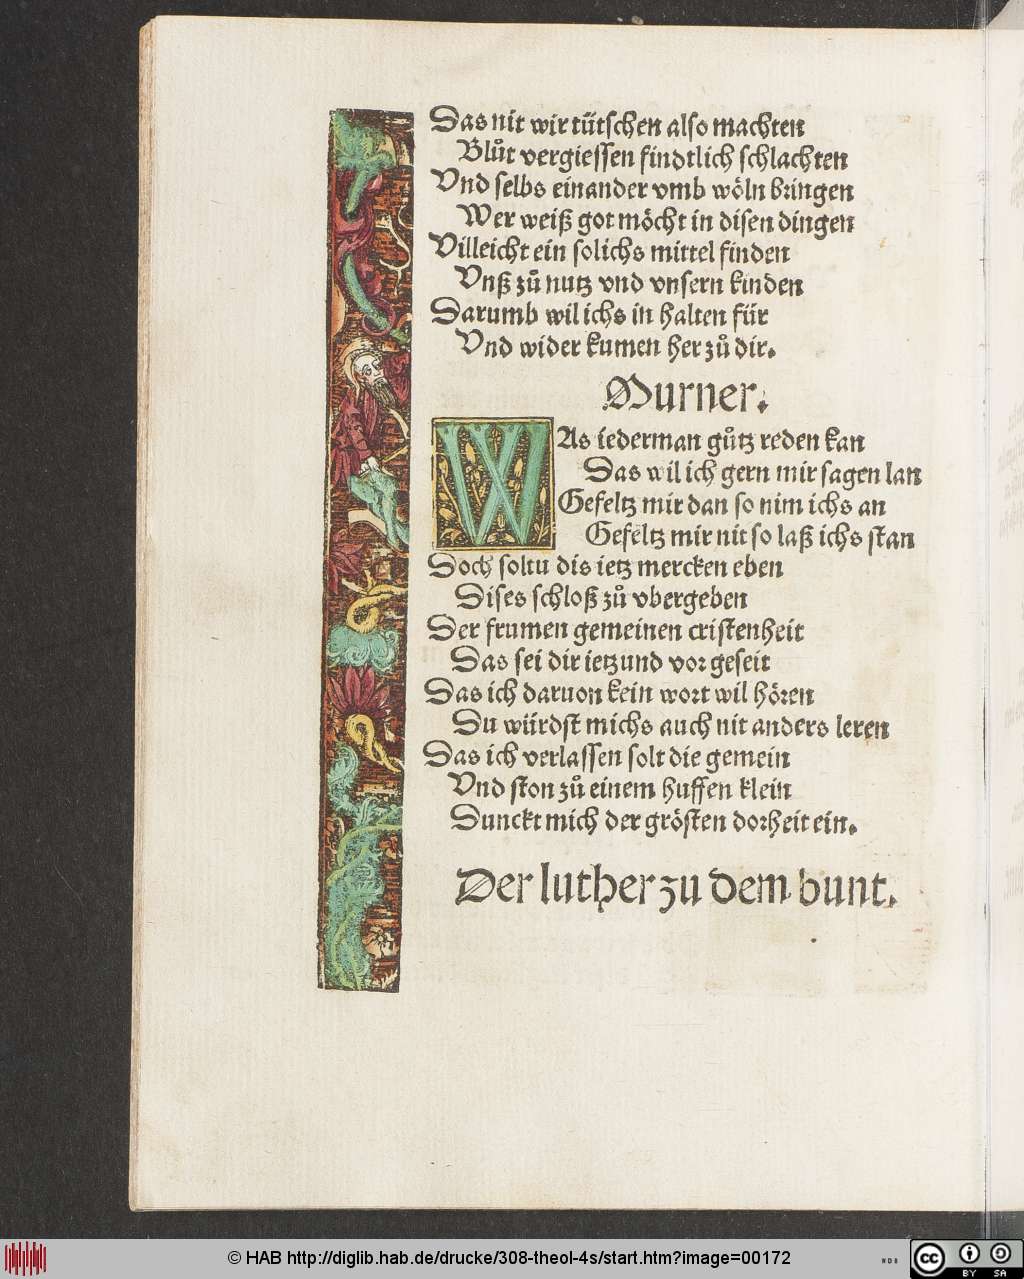 Das nit wir tütschen also machten
Blůt vergiessen findtlich schlachten
Vnd selbs einander vmb wöln bringen
Wer weiß got möcht in disen dingen
Villeicht ein solichs mittel finden
Vnß zů nutz vnd vnsern kinden
Darumb wil ichs in halten für
Vnd wider kumen her zů dir.
Murner.
WAs iederman gůtz reden kan
Das wil ich gern mir sagen lan
Gefeltz mir dan so nim ichs an
Gefeltz mir nit so laß ichs stan
Doch soltu dis ietz mercken eben
Dises schloß zů vbergeben
Der frumen gemeinen cristenheit
Das sei dir ietzund vor geseit
Das ich daruon kein wort wil hören
Du würdst michs auch nit anders leren
Das ich verlassen solt die gemein
Vnd ston zů einem huffen klein
Dunckt mich der grösten dorheit ein.
Der luther zu dem bunt.
© HAB http://diglib.hab.de/drucke/308-theol-4s/start.htm?image=00172
WDB
cc BY SA